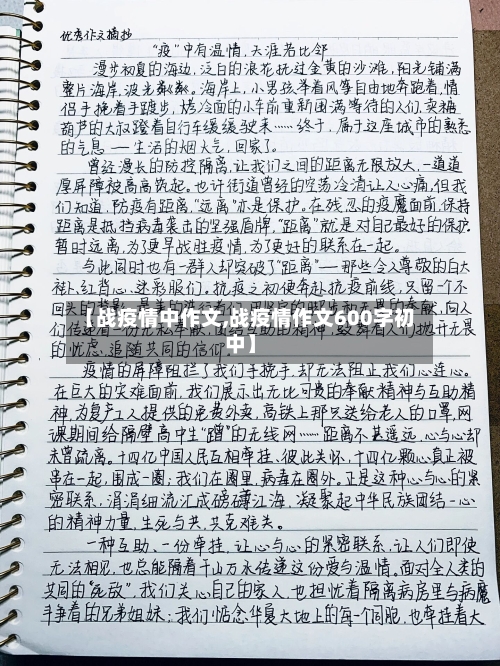 优秀作文摘抄
"疫"中有温情,天涯若比邻
漫步初夏的海边,泛白的浪花抚过金黄的沙滩,阳光铺满
整片海岸,波光粼粼。海岸上,小男孩举着风筝自由地奔跑着,情
侣手挽着手踱步,烤冷面的小车前重新围满等待的人们,卖糖
葫芦的大叔蹬着自行车缓缓驶来……终于,属于这座城市的熟悉
的气息——生活的烟火气,回家了。
曾经漫长的防控隔离,让我们之间的距离无限放大,一道道
厚屏障被高高筑起。也许街道曾经的空荡冷清让人心痛,但我
们知道,防疫有距离,"远离"亦是保护。在残忍的疫魔面前,保持
距离是抵挡病毒袭击的坚强盾牌,"距离"就是对自己最好的保护。
暂时远离,为了更早战胜疫情,为了更好的联系在一起。
与此同时也有一群人却突破了"距离"——那些令人尊敬的白大
褂、红背心、迷彩服们。抗疫之初便奔赴抗疫前线,只留一个不
回头的背影。
【战疫情中作文,战疫情作文600字初
中】
的忧虑,追随共同的信仰。
疫情的屏障阻拦了我们手挽手,却无法阻止我们心连心。
在巨大的灾难面前,我们展示出无比可贵的奉献精神与互助精
神,为复产工人提供的免费外卖,高铁上那只送给老人的口罩,网
课期间给隔壁高中生"蹭"的无线网……距离不甚遥远,心与心却
未曾疏离。十四亿中国人民互相牵挂、彼此关怀,十四亿颗心真正被
串在一起,围成一圈;我们在圈里,病毒在圈外。正是这种心与心的紧
密联系,涓涓细流汇成磅礴江海,凝聚起中华民族团结一心
的精神力量,生死与共,共克难关。
一种互助、一份牵挂,让心与心的紧密联系,让人们即使
无法相见,也总能隔着千山万水传递这份爱与温情,面对全人类的
共同的"死敌",我们关心自己的家人,也担忧着隔离病房里与病魔
斗争着的兄弟姐妹;我们惦念华夏大地上的每一个同胞,也牵挂着大